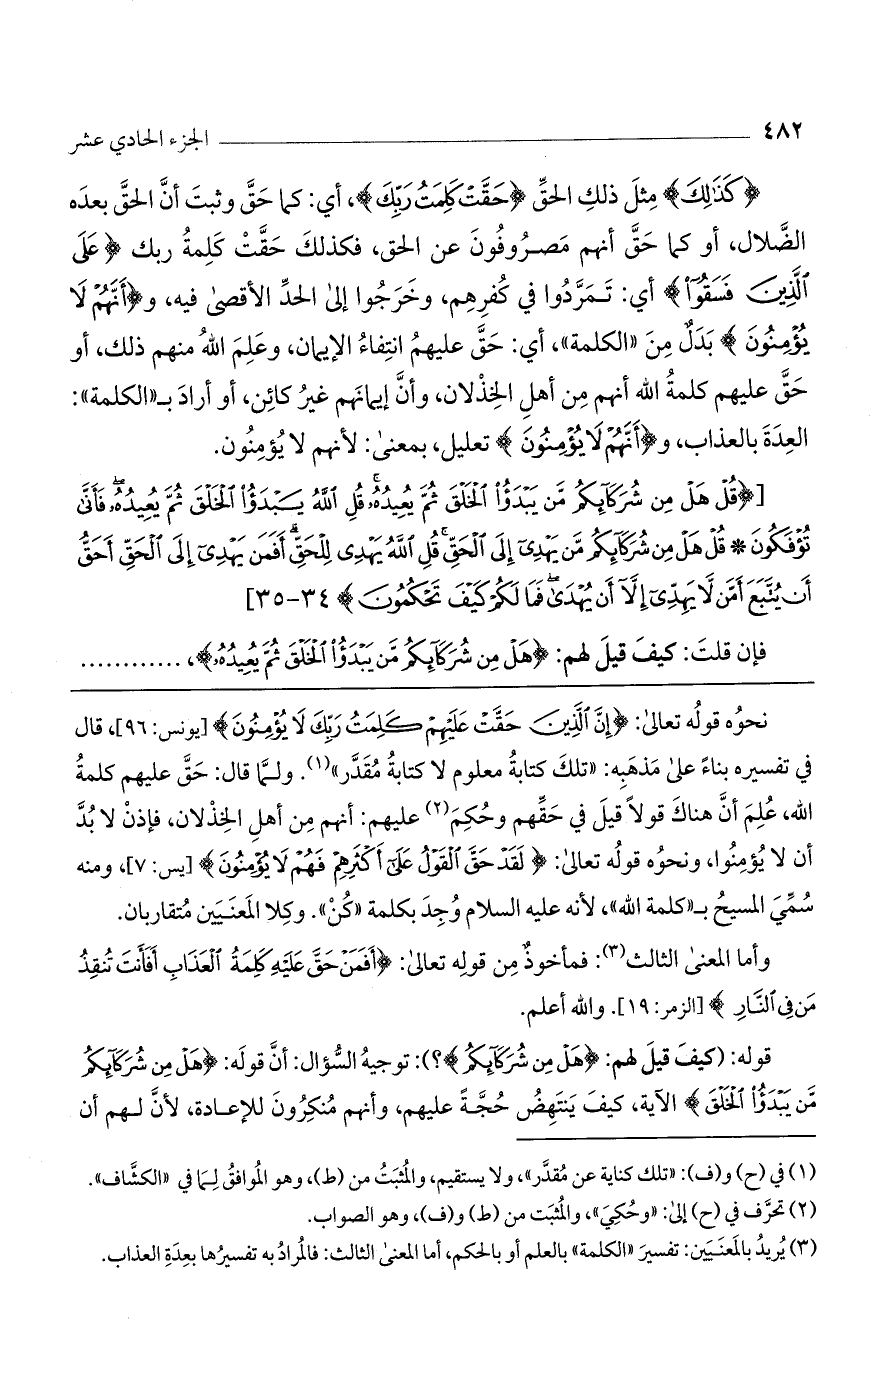 ٤٨٢ ــــــــــــــــــــ الجزء الحادي عشر
﴿كَذَٰلِكَ﴾ مِثلَ ذلكِ الحقِّ ﴿حَقَّتْ كَلِمَتُ رَبِّكَ﴾، أي: كما حَقَّ وثبتَ أنَّ الحقَّ بعدَه
الضَّلال، أو كما حَقَّ أنهم مَصروفُونَ عن الحق، فكذلكَ حَقَّتْ كَلِمةُ ربك ﴿عَلَى
ٱلَّذِينَ فَسَقُوٓا۟﴾ أي: تَمرَّدُوا في كُفرِهِم، وخَرَجُوا إلىٰ الحدِّ الأقصىٰ فيه، و﴿أَنَّهُمْ لَا
يُؤْمِنُونَ﴾ بَدَلٌ مِنَ «الكلمة»، أي: حَقَّ عليهمُ انتِفاءُ الإيمان، وعَلِمَ اللهُ منهم ذلك، أو
حَقَّ عليهم كلمةُ الله أنهم مِن أهلِ الخِذْلان، وأنَّ إيمانَهم غيرُ كائِن، أو أرادَ بـ«الكلمة»:
العِدَةَ بالعذاب، و﴿أَنَّهُمْ لَا يُؤْمِنُونَ﴾ تعليل، بمعنىٰ: لأنهم لا يُؤمِنُون.
[﴿قُلْ هَلْ مِن شُرَكَآئِكُم مَّن يَبْدَؤُا۟ ٱلْخَلْقَ ثُمَّ يُعِيدُهُۥ ۚ قُلِ ٱللَّهُ يَبْدَؤُا۟ ٱلْخَلْقَ ثُمَّ يُعِيدُهُۥ ۖ فَأَنَّىٰ
تُؤْفَكُونَ * قُلْ هَلْ مِن شُرَكَآئِكُم مَّن يَهْدِىٓ إِلَى ٱلْحَقِّ ۚ قُلِ ٱللَّهُ يَهْدِى لِلْحَقِّ ۗ أَفَمَن يَهْدِىٓ إِلَى ٱلْحَقِّ أَحَقُّ
أَن يُتَّبَعَ أَمَّن لَّا يَهِدِّىٓ إِلَّآ أَن يُهْدَىٰ ۖ فَمَا لَكُمْ كَيْفَ تَحْكُمُونَ﴾ ٣٤-٣٥]
فإن قلتَ: كيفَ قيلَ لهم: ﴿هَلْ مِن شُرَكَآئِكُم مَّن يَبْدَؤُا۟ ٱلْخَلْقَ ثُمَّ يُعِيدُهُۥ﴾، ............
نحوُه قولُه تعالىٰ: ﴿إِنَّ ٱلَّذِينَ حَقَّتْ عَلَيْهِمْ كَلِمَتُ رَبِّكَ لَا يُؤْمِنُونَ﴾ [يونس: ٩٦]، قال
في تفسيره بناءً علىٰ مَذهَبِه: «تلكَ كتابةُ معلوم لا كتابةُ مُقَدَّر»(١). ولـمَّا قال: حَقَّ عليهم كلمةُ
الله، عُلِمَ أنَّ هناكَ قولاً قيلَ في حَقِّهم وحُكِمَ(٢) عليهم: أنهم مِن أهلِ الخِذْلان، فإذنْ لا بُدَّ
أن لا يُؤمِنُوا، ونحوُه قولُه تعالىٰ: ﴿لَقَدْ حَقَّ ٱلْقَوْلُ عَلَىٰٓ أَكْثَرِهِمْ فَهُمْ لَا يُؤْمِنُونَ﴾ [يس: ٧]، ومنه
سُمِّيَ المسيحُ بـ«كلمة الله»، لأنه عليه السلام وُجِدَ بكلمة «كُنْ». وكِلا المَعنَيَين مُتقاربان.
وأما المعنىٰ الثالث(٣): فمأخوذٌ مِن قولِه تعالىٰ: ﴿أَفَمَنْ حَقَّ عَلَيْهِ كَلِمَةُ ٱلْعَذَابِ أَفَأَنتَ تُنقِذُ
مَن فِى ٱلنَّارِ﴾ [الزمر: ١٩]. والله أعلم.
قوله: (كيفَ قيلَ لهم: ﴿هَلْ مِن شُرَكَآئِكُم﴾؟): توجيهُ السُّؤال: أنَّ قولَه: ﴿هَلْ مِن شُرَكَآئِكُم
مَّن يَبْدَؤُا۟ ٱلْخَلْقَ﴾ الآية، كيفَ يَنتَهِضُ حُجَّةً عليهم، وأنهم مُنكِرُونَ للإعادة، لأنَّ لهم أن
(١) في (ح) و(ف): «تلك كناية عن مُقدَّر»، ولا يستقيم، والمُثبَتُ من (ط)، وهو المُوافقُ لِمَا في «الكشَّاف».
(٢) تحرَّف في (ح) إلىٰ: «وحُكِيَ»، والمُثبَت من (ط) و(ف)، وهو الصواب.
(٣) يُريدُ بالمَعنَيَين: تفسيرَ «الكلمة» بالعلم أو بالحكم، أما المعنىٰ الثالث: فالمُرادُ به تفسيرُها بعِدَةِ العذاب.